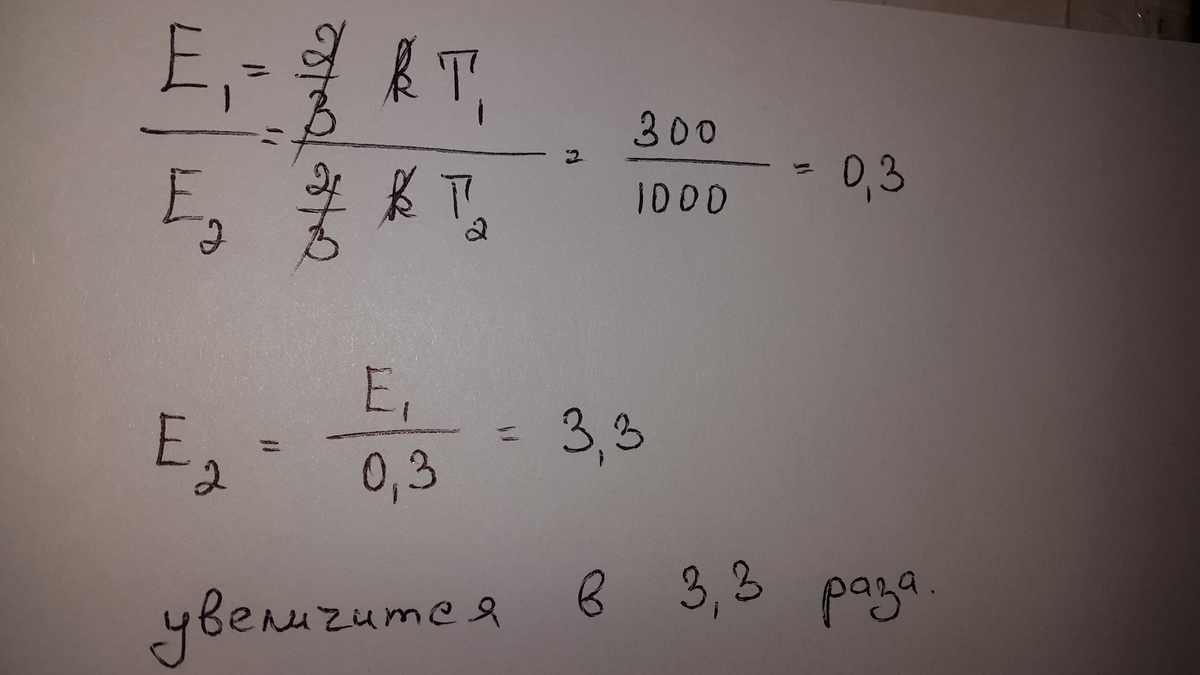 E₁ = 2/3 k T₁ / E₂ = 2/3 k T₂ = 300/1000 = 0,3
E₂ = E₁/0,3 = 3,3
увеличится в 3,3 раза.